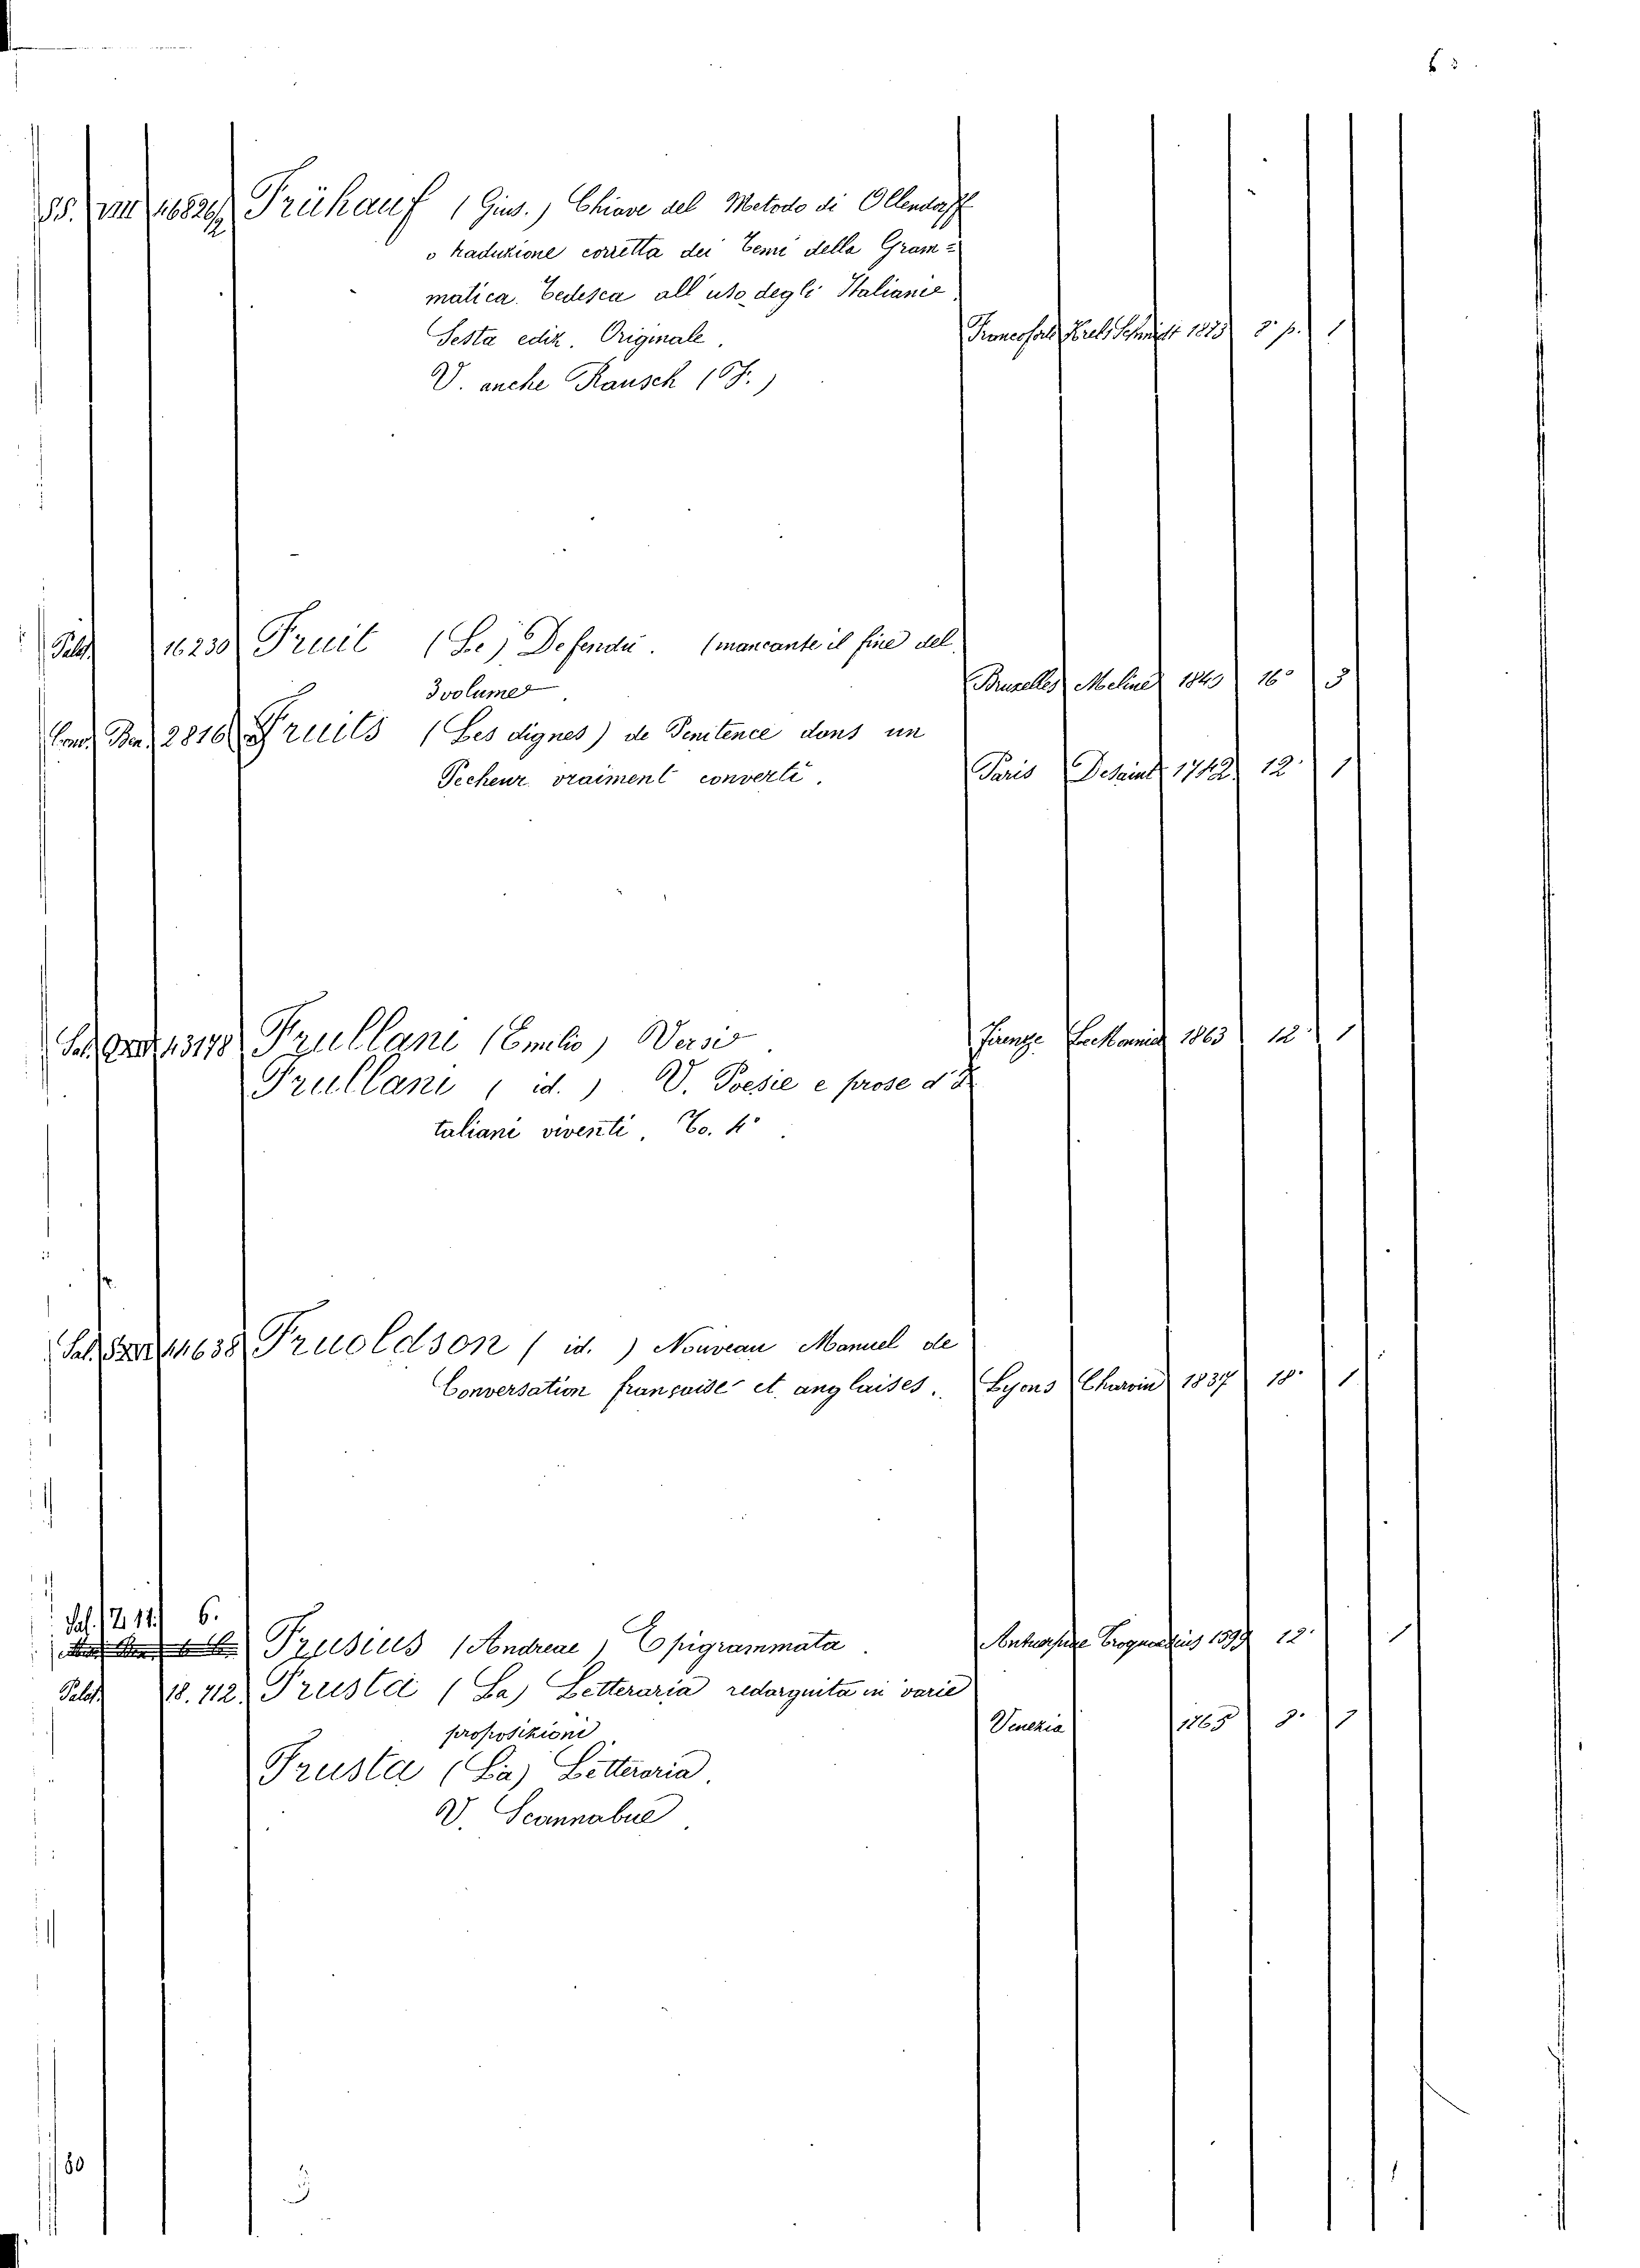 63
SS. VIII 16826/2 Frühauf (Gius.) Chiave del Metodo di Ollendorff
o traduzione corretta dei Temi della Gram=
matica Tedesca all'uso degli Italiani.
Sesta ediz. Originale. Francoforte Schmidt 1873 8° p. 1
V. anche Rausch (F.)
Palch. 16230 Fruit (Le) Defendu. (mancante il fine del
3 volume). Bruxelles Meline 1840 16° 3
Ben. 2816 Fruits (Les dignes) de Penitence dans un
Pecheur vraiment converti. Paris Desaint 1742 12° 1
Sal. 13178 Frullani (Emilio) Versi. Firenze Lemonnier 1863 12° 1
Frullani (id.) V. Poesie e prose d'I
taliani viventi, To. 4°.
Sal. 11638 Fruoldson (id.) Nouveau Manuel de
Conversation française et anglaises. Lyons Charvin 1837 18° 1
Sal. Z. 11. 6.
Frusius (Andreae) Epigrammata. Antuerpiae 1599 12° 1
Palch. 18.712. Frusta (La) Letteraria redarguita in varie
proposizioni. Venezia 1765 1
Frusta (La) Letteraria.
V. Scannabue.
80